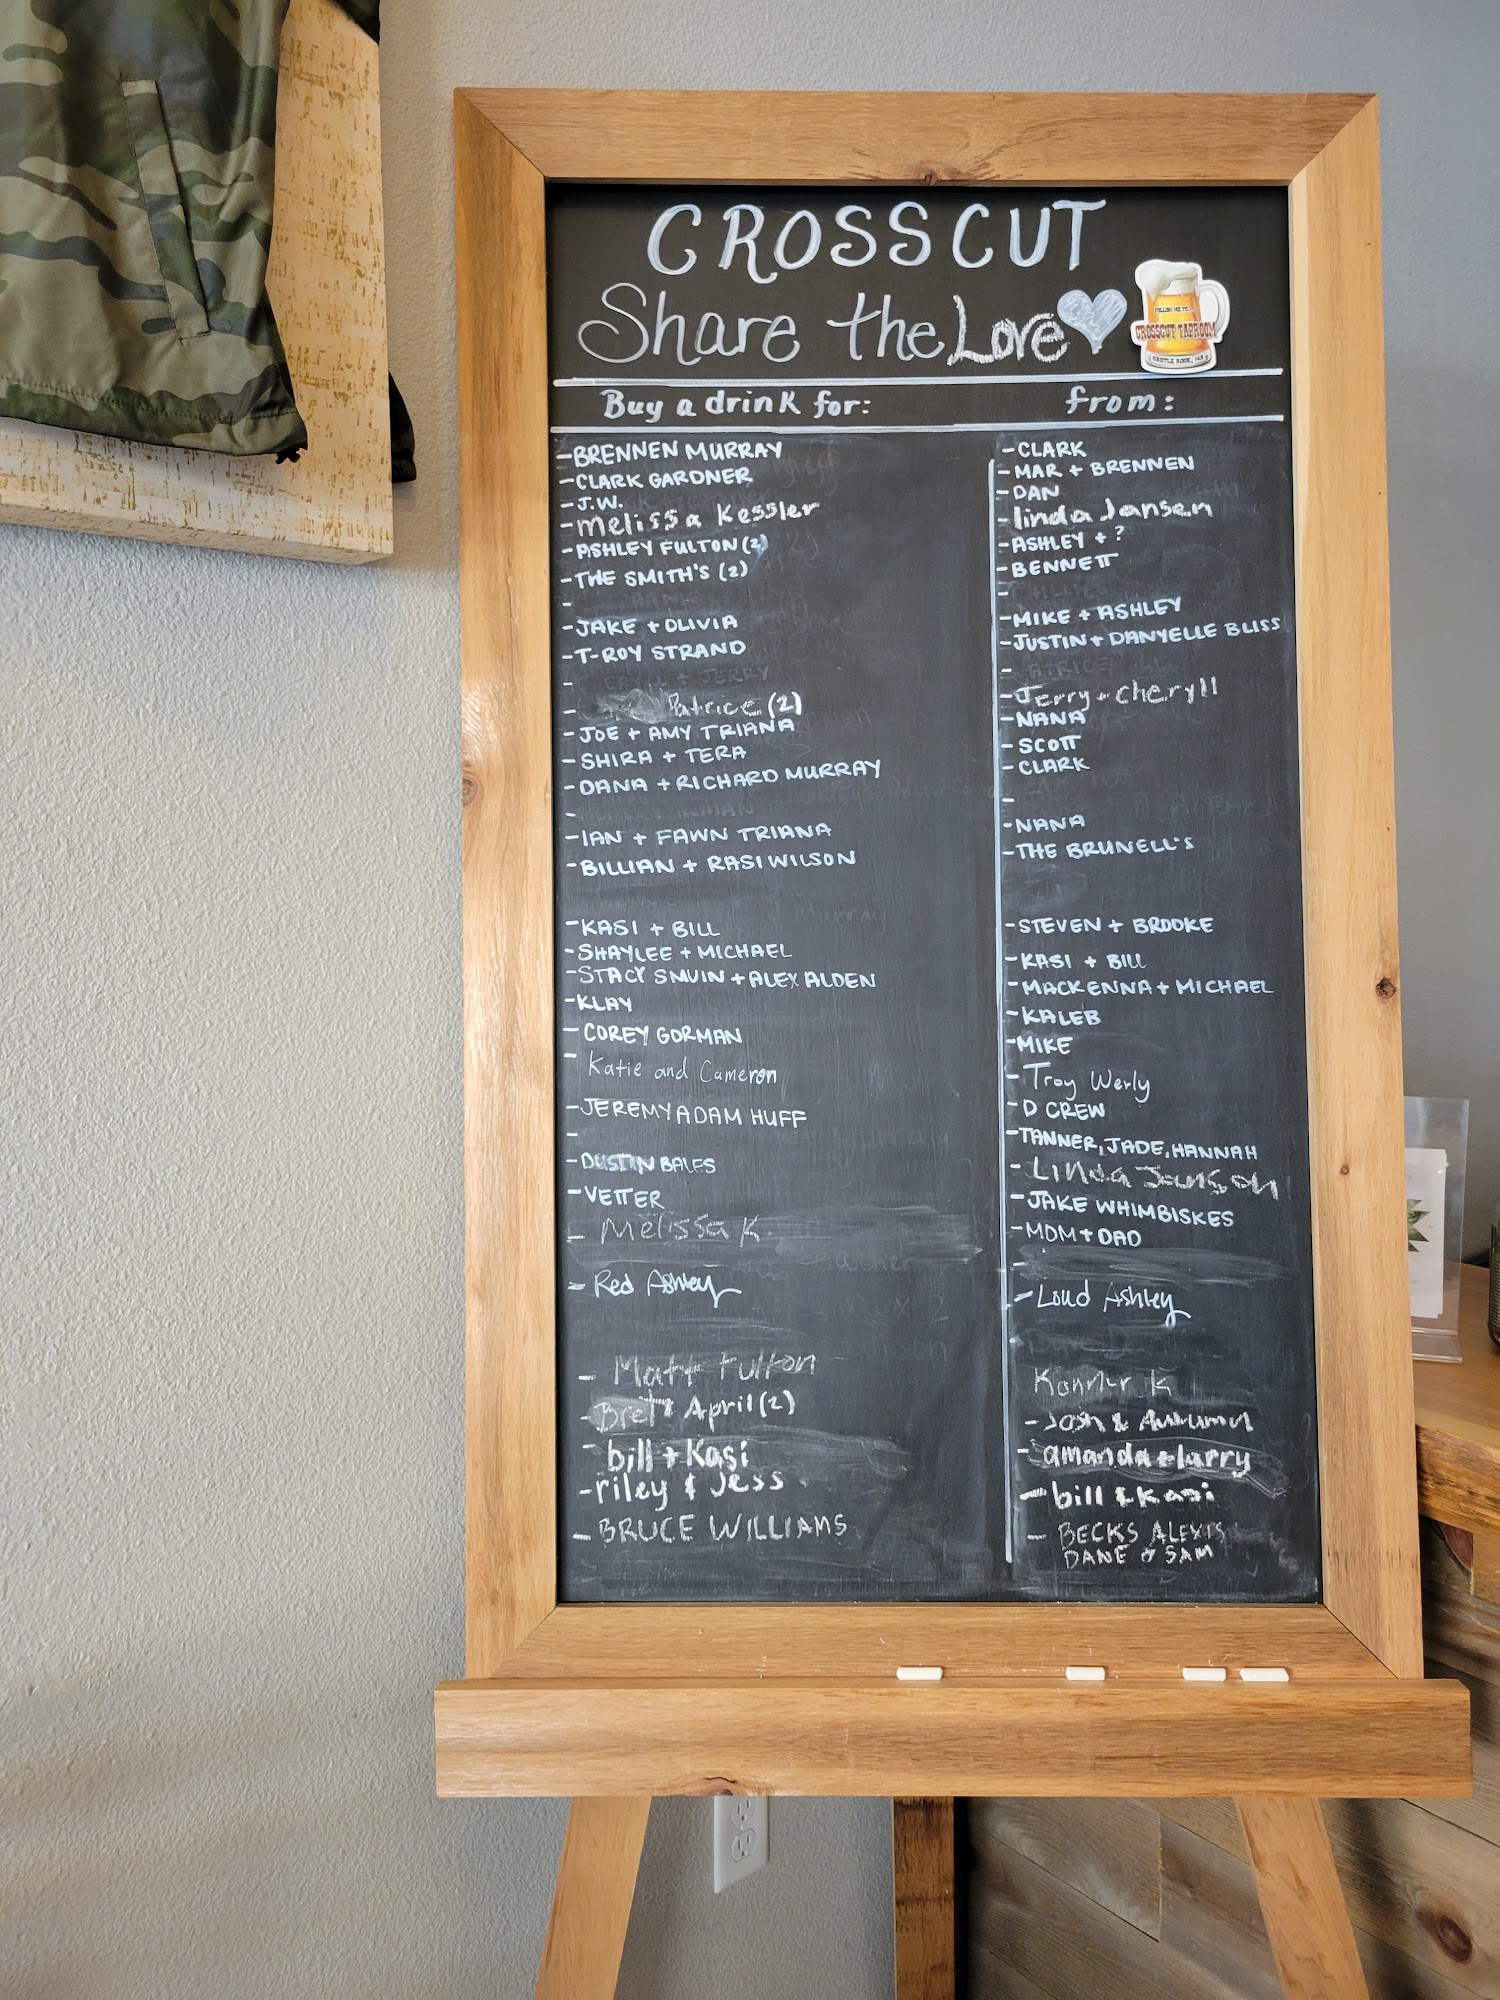 CROSSCUT
Share the Love
FOLLOW ME TO
CROSSCUT TAPROOM
CASTLE ROCK, WA
Buy a drink for: from:
-BRENNEN MURRAY -CLARK
-CLARK GARDNER -MAR + BRENNEN
-J.W. -DAN
-Melissa Kessler -linda Jansen
-ASHLEY FULTON (2) -ASHLEY + ?
-THE SMITH'S (2) -BENNETT
- -
-JAKE + OLIVIA -MIKE + ASHLEY
-T-ROY STRAND -JUSTIN + DANYELLE BLISS
- -
- Patrice (2) -Jerry + Cheryll
-JOE + AMY TRIANA -NANA
-SHIRA + TERA -SCOTT
-DANA + RICHARD MURRAY -CLARK
- -
-IAN + FAWN TRIANA -NANA
-BILLIAN + RASI WILSON -THE BRUNELL'S
-KASI + BILL -STEVEN + BROOKE
-SHAYLEE + MICHAEL -KASI + BILL
-STACY SMUIN + ALEX ALDEN -MACKENNA + MICHAEL
-KLAY -KALEB
-COREY GORMAN -MIKE
- Katie and Cameron - Troy Werly
-JEREMY ADAM HUFF -D CREW
- -TANNER, JADE, HANNAH
-DUSTIN BALES - Linda Janson
-VETTER -JAKE WHIMBISKES
- Melissa K -MOM + DAD
- Red Ashley - Loud Ashley
- Matt Fulton Konnor K
- Bret & April (2) - Josh & Autumn
- bill + Kasi - amanda + larry
-riley & Jess - bill & Kasi
- BRUCE WILLIAMS - BECKS ALEXIS
DANE & SAM